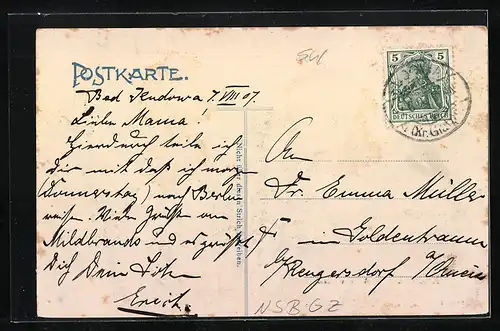 541
POSTKARTE.
Bad Kudowa 7. VIII 07.
Liebe Mama!
Hierdurch teile ich
Dir mit daß ich morgen
(Donnerstag) nach Berlin
reise. Viele Grüße von
Mildbrands und es grüßt
Dich Dein
Erich.
Nicht über diesen Strich schreiben.
5 5
DEUTSCHES REICH
(Kr. Glatz)
An
Fr. Emma Müller
in Goldentraum
b/ Rengersdorf
NSB-GZ